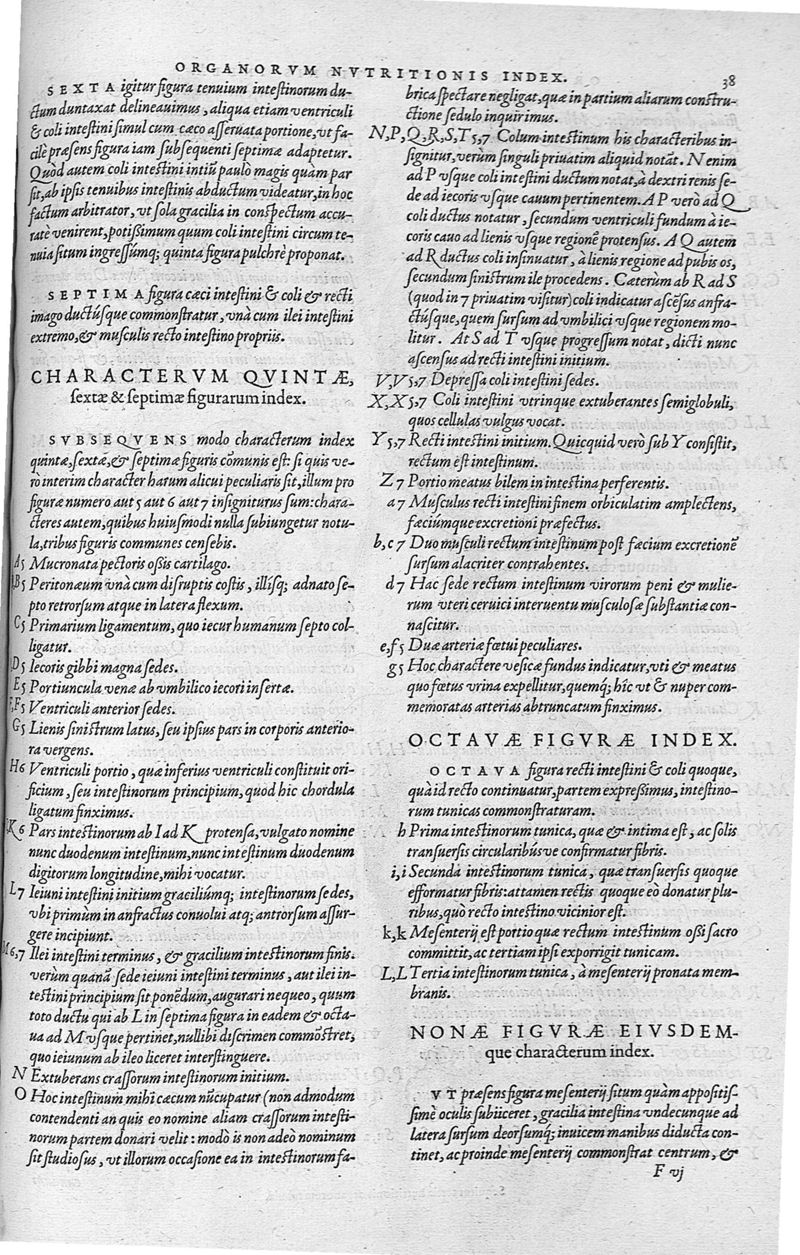 ORGANORVM NVTRITIONIS INDEX.
38
SEXTA igitur figura tenuium intestinorum du-
ctum duntaxat delineauimus, aliqua etiam ventriculi
& coli intestini simul cum cæco asseruata portione, vt fa-
cilè præsens figura iam subsequenti septimæ adaptetur.
Quòd autem coli intestini intiũ paulò magis quàm par
sit, ab ipsis tenuibus intestinis abductum videatur, in hoc
factum arbitrator, vt sola gracilia in conspectum accu-
ratè venirent, potißimum quum coli intestini circum te-
nuia situm ingressúmq; quinta figura pulchrè proponat.
SEPTIMA figura cæci intestini & coli & recti
imago ductúsque commonstratur, vnà cum ilei intestini
extremo, & musculis recto intestino propriis.
CHARACTERVM QVINTÆ,
sextæ & septimæ figurarum index.
SVBSEQVENS modo characterum index
quintæ, sextæ, & septimæ figuris cõmunis est: si quis ve-
rò interim character harum alicui peculiaris sit, illum pro
figuræ numero aut 5 aut 6 aut 7 insigniturus sum: chara-
cteres autem, quibus huiusmodi nulla subiungetur notu-
la, tribus figuris communes censebis.
A 5 Mucronata pectoris oßis cartilago.
B 5 Peritonæum vnà cum disruptis costis, illísq; adnato se-
pto retrorsum atque in latera flexum.
C 5 Primarium ligamentum, quo iecur humanum septo col-
ligatur.
D 5 Iecoris gibbi magna sedes.
E 5 Portiuncula venæ ab vmbilico iecori insertæ.
F,F 5 Ventriculi anterior sedes.
G 5 Lienis sinistrum latus, seu ipsius pars in corporis anterio-
ra vergens.
H 6 Ventriculi portio, quæ inferius ventriculi constituit ori-
ficium, seu intestinorum principium, quod hic chordula
ligatum finximus.
K 6 Pars intestinorum ab I ad K protensa, vulgato nomine
nunc duodenum intestinum, nunc intestinum duodenum
digitorum longitudine, mihi vocatur.
L 7 Ieiuni intestini initium graciliúmq; intestinorum sedes,
vbi primùm in anfractus conuolui atq; antrorsum assur-
gere incipiunt.
M 6,7 Ilei intestini terminus, & gracilium intestinorum finis.
verùm quanã sede ieiuni intestini terminus, aut ilei in-
testini principium sit ponẽdum, augurari nequeo, quum
toto ductu qui ab L in septima figura in eadem & octa-
ua ad M vsque pertinet, nullibi discrimen commõstret,
quo ieiunum ab ileo liceret interstinguere.
N Extuberans crassorum intestinorum initium.
O Hoc intestinum mihi cæcum nũcupatur (non admodum
contendenti an quis eo nomine aliam crassorum intesti-
norum partem donari velit: modò is non adeò nominum
sit studiosus, vt illorum occasione ea in intestinorum fa-
brica spectare negligat, quæ in partium aliarum constru-
ctione sedulo inquirimus.
N,P,Q,R,S,T 5,7 Colum intestinum his characteribus in-
signitur, verùm singuli priuatim aliquid notãt. N enim
ad P vsque coli intestini ductum notat, à dextri renis se-
de ad iecoris vsque cauum pertinentem. A P verò ad Q
coli ductus notatur, secundum ventriculi fundum à ie-
coris cauo ad lienis vsque regionẽ protensus. A Q autem
ad R ductus coli insinuatur, à lienis regione ad pubis os,
secundum sinistrum ile procedens. Cæterùm ab R ad S
(quod in 7 priuatim visitur) coli indicatur ascẽsus anfra-
ctúsque, quem sursum ad vmbilici vsque regionem mo-
litur. At S ad T vsque progressum notat, dicti nunc
ascensus ad recti intestini initium.
V,V 5,7 Depressa coli intestini sedes.
X,X 5,7 Coli intestini vtrinque extuberantes semiglobuli,
quos cellulas vulgus vocat.
Y 5,7 Recti intestini initium. Quicquid verò sub Y consistit,
rectum est intestinum.
Z 7 Portio meatus bilem in intestina perferentis.
a 7 Musculus recti intestini finem orbiculatim amplectens,
fæciúmque excretioni præfectus.
b,c 7 Duo musculi rectum intestinum post fæcium excretionẽ
sursum alacriter contrahentes.
d 7 Hac sede rectum intestinum virorum peni & mulie-
rum vteri ceruici interuentu musculosæ substantiæ con-
nascitur.
e,f 5 Duæ arteriæ fœtui peculiares.
g 5 Hoc charactere vesicæ fundus indicatur, vti & meatus
quo fœtus vrina expellitur, quemq; híc vt & nuper com-
memoratas arterias abtruncatum finximus.
OCTAVÆ FIGVRÆ INDEX.
OCTAVA figura recti intestini & coli quoque,
quà id recto continuatur, partem expreßimus, intestino-
rum tunicas commonstraturam.
h Prima intestinorum tunica, quæ & intima est, ac solis
transuersis circularibúsve confirmatur fibris.
i,i Secunda intestinorum tunica, quæ transuersis quoque
efformatur fibris: attamen rectis quoque eò donatur plu-
ribus, quò recto intestino vicinior est.
k,k Mesenterij est portio quæ rectum intestinum oßi sacro
committit, ac tertiam ipsi exporrigit tunicam.
L,L Tertia intestinorum tunica, à mesenterij pronata mem-
branis.
NONÆ FIGVRÆ EIVSDEM-
que characterum index.
VT præsens figura mesenterij situm quàm appositiß-
simè oculis subiiceret, gracilia intestina vndecunque ad
latera sursum deorsumq; inuicem manibus diducta con-
tinet, ac proinde mesenterij commonstrat centrum, &
F vj